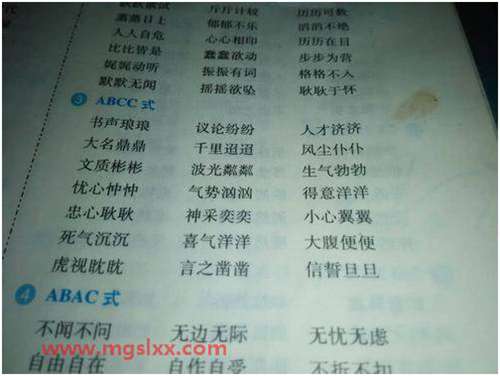 斤斤计较 历历可数
蒸蒸日上 郁郁不乐 滔滔不绝
人人自危 心心相印 历历在目
比比皆是 蠢蠢欲动 步步为营
娓娓动听 振振有词 格格不入
默默无闻 摇摇欲坠 耿耿于怀
3 ABCC 式
书声琅琅 议论纷纷 人才济济
大名鼎鼎 千里迢迢 风尘仆仆
文质彬彬 波光粼粼 生气勃勃
忧心忡忡 气势汹汹 得意洋洋
忠心耿耿 神采奕奕 小心翼翼
死气沉沉 喜气洋洋 大腹便便
虎视眈眈 言之凿凿 信誓旦旦
4 ABAC 式
不闻不问 无边无际 无忧无虑
自由自在 自作自受 不折不扣
www.mgslxx.com